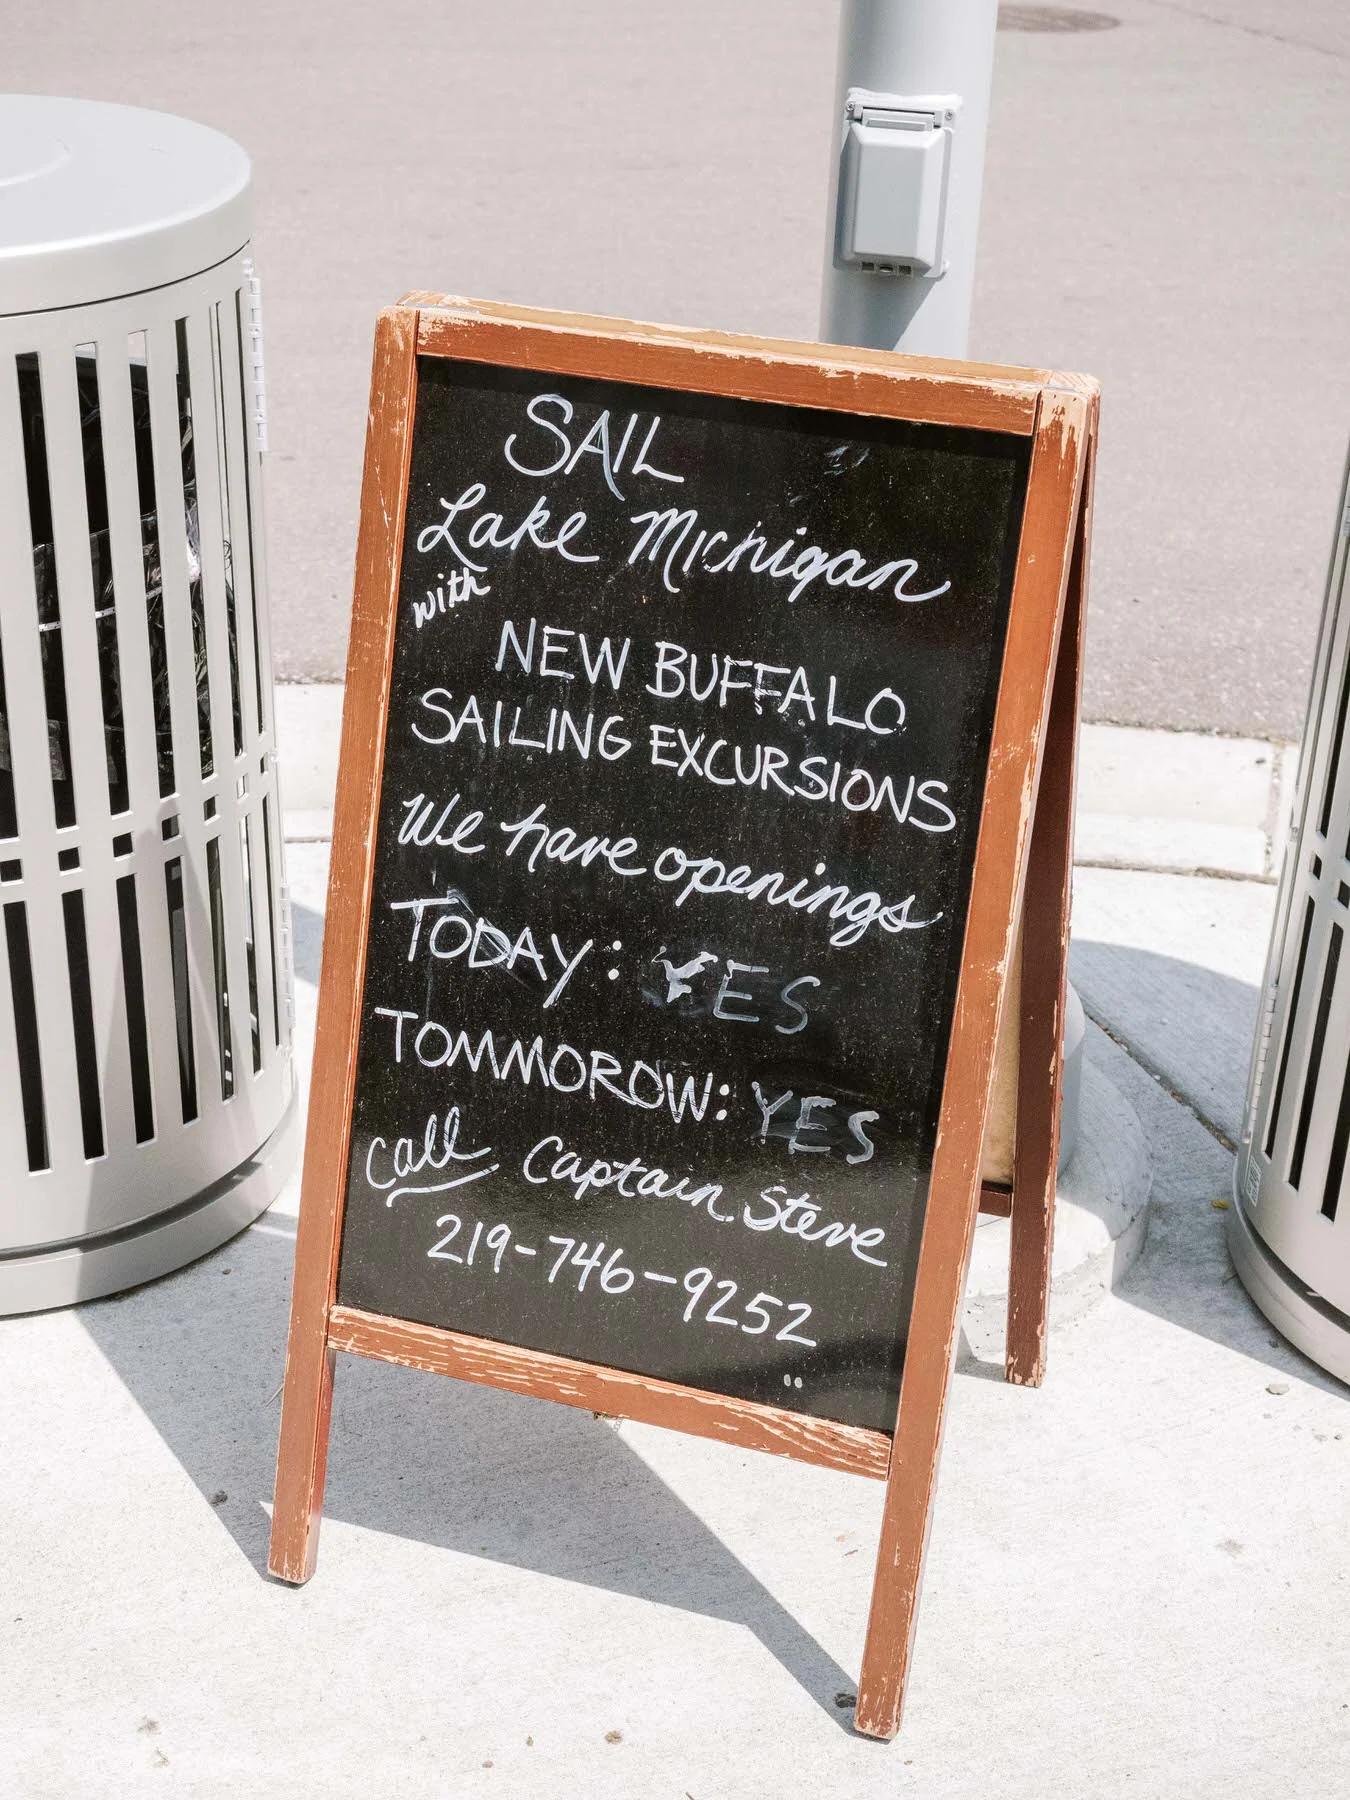 SAIL
Lake Michigan
with
NEW BUFFALO
SAILING EXCURSIONS
We have openings
TODAY: YES
TOMMOROW: YES
Call Captain Steve
219-746-9252